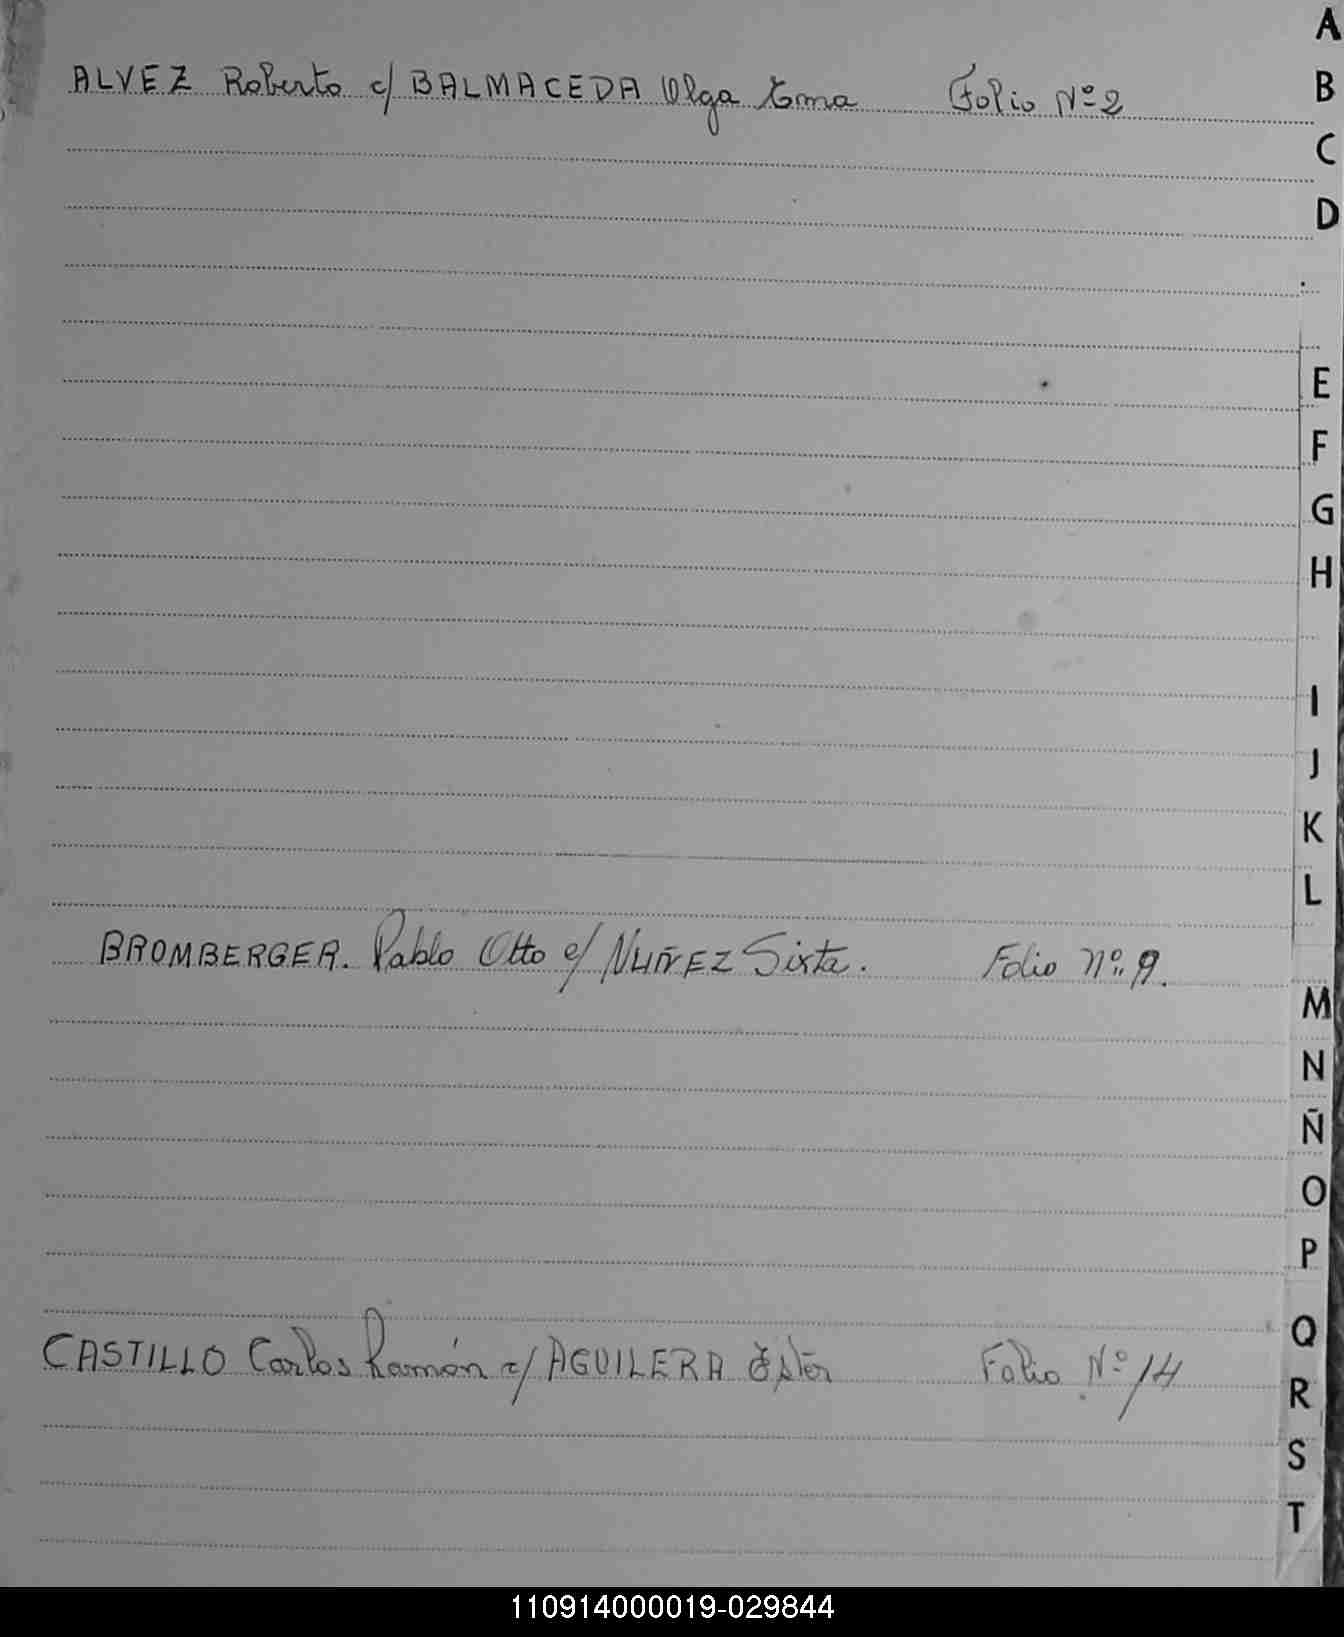 A
ALVEZ Roberto c/ BALMACEDA Olga Ema Folio Nº 2
B
C
D
E
F
G
H
I
J
K
L
BROMBERGER. Pablo Otto c/ NUÑEZ Sixta. Folio nº 9.
M
N
Ñ
O
P
Q
CASTILLO Carlos Ramón c/ AGUILERA Ester Folio Nº 14
R
S
T
110914000019-029844